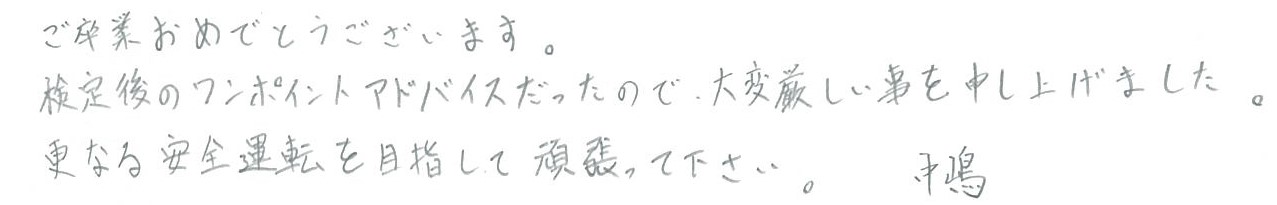 ご卒業おめでとうございます。
検定後のワンポイントアドバイスだったので、大変厳しい事を申し上げました。
更なる安全運転を目指して頑張って下さい。 中嶋